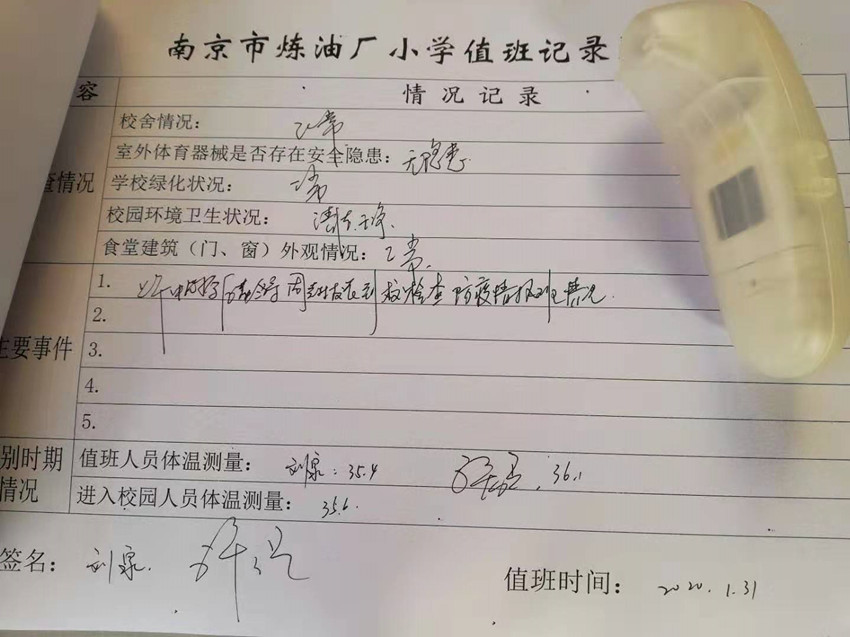 南京市炼油厂小学值班记录
容 情况记录
校舍情况： 正常
室外体育器械是否存在安全隐患：无隐患
查情况 学校绿化状况： 正常
校园环境卫生状况： 清洁干净.
食堂建筑（门、窗）外观情况：正常.
1. 上午 到校检查防疫情 情况.
2.
主要事件 3.
4.
5.
别时期 值班人员体温测量： 刘泉：35.4 36.1
情况 进入校园人员体温测量： 35.6
签名： 刘泉.
值班时间： 2020.1.31